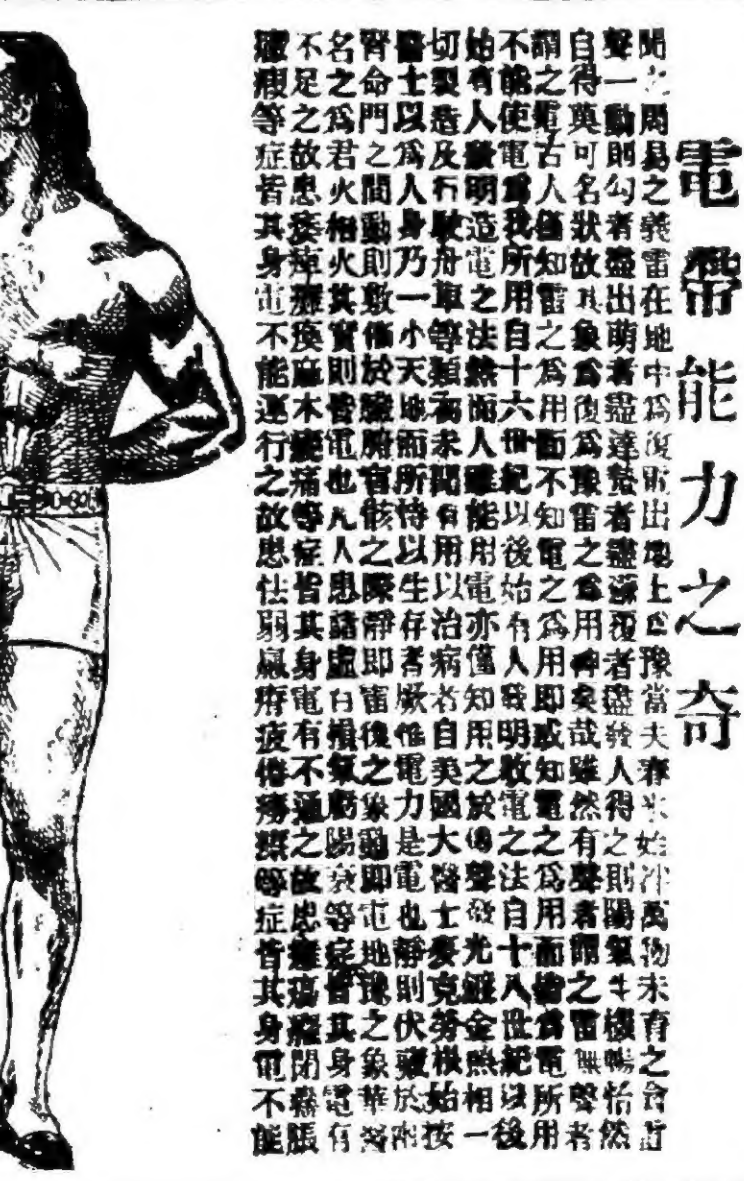 電帶能力之奇
聞之周易之義雷在地中爲復雷出地上爲豫當夫春氷始泮萬物未育之會
聲一動則勾者盡出萌者盡達蟄者盡蘇覆者盡發人得之則陽氣生機暢怡然
自得莫可名狀故其象爲復爲豫雷之爲用神矣哉雖然有聲者謂之雷無聲者
謂之電古人僅知雷之爲用而不知電之爲用即或知電之爲用而猶爲電所用
不能使電爲我所用自十六世紀以後始有人發明收電之法自十八世紀以後
始有人發明造電之法然而人雖能用電亦僅知用之於傳聲發光鍍金照相一
切製造及行駛舟車等類初未聞有用以治病者自美國大醫士麥克勞根始按
醫士以爲人身乃一小天地而所恃以生存者厥惟電力是電也靜則伏藏於兩
腎命門之間動則敷佈於臟腑官骸之際靜即雷復之象動即雷地豫之象華醫
名之爲君火相火其實則皆電也凡人患諸虛百損氣虧陽衰等症皆其身電有
不足之故患痿痺癱瘓麻木酸痛等症皆其身電有不通之故患癰瘍癃閉蠱脹
瘕等症皆其身電不能運行之故患怯弱羸瘠疲倦癆瘵等症皆其身電不能